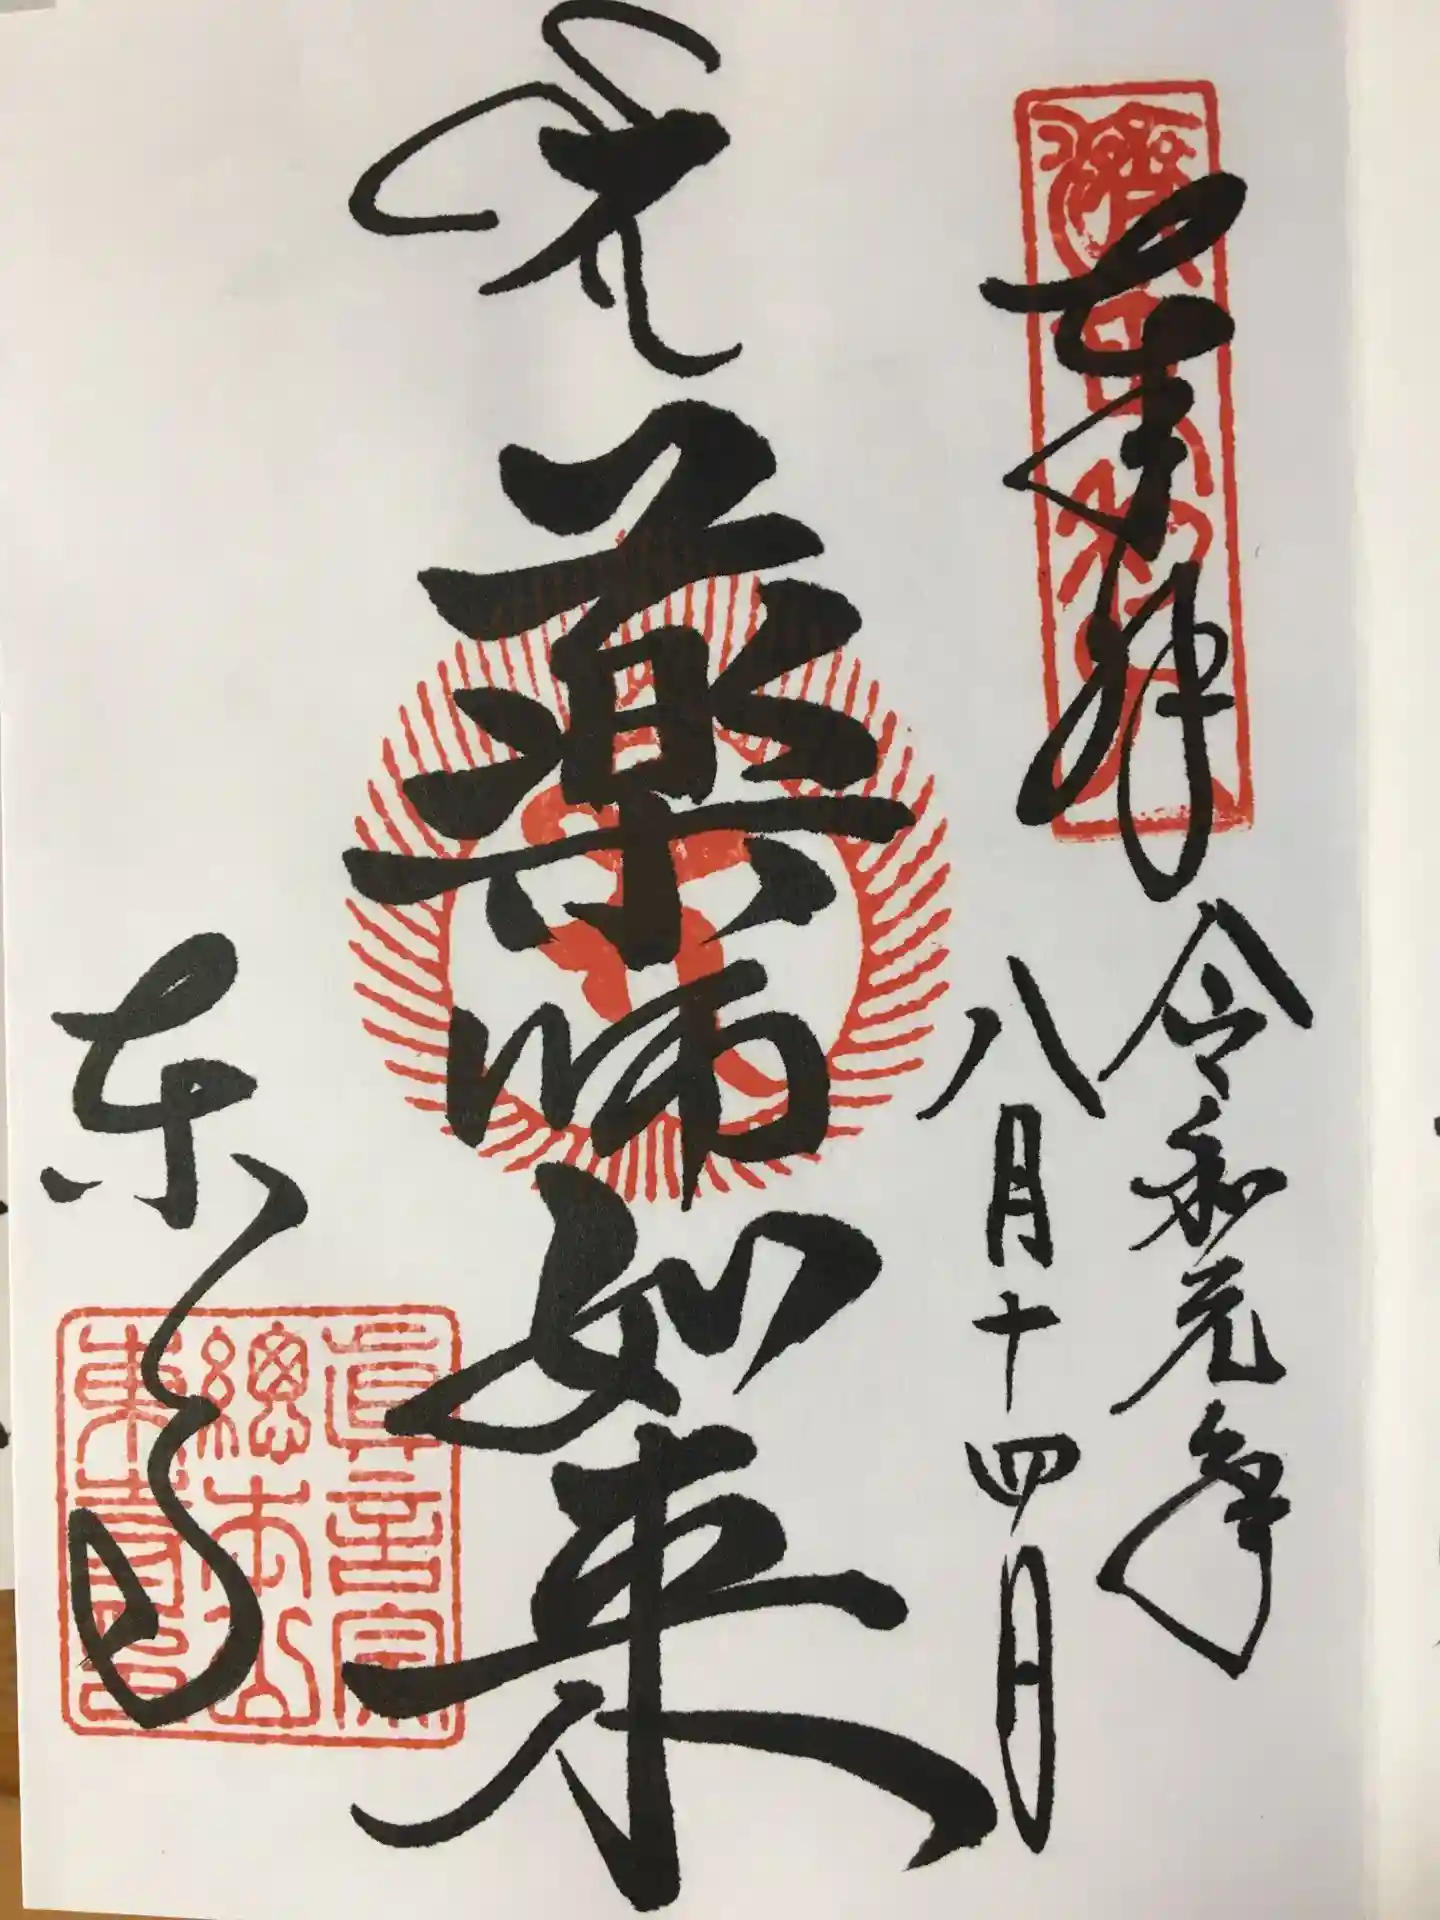 奉拝
令和元年
八月十四日
薬師如来
東寺
真言宗
總本山
東寺印